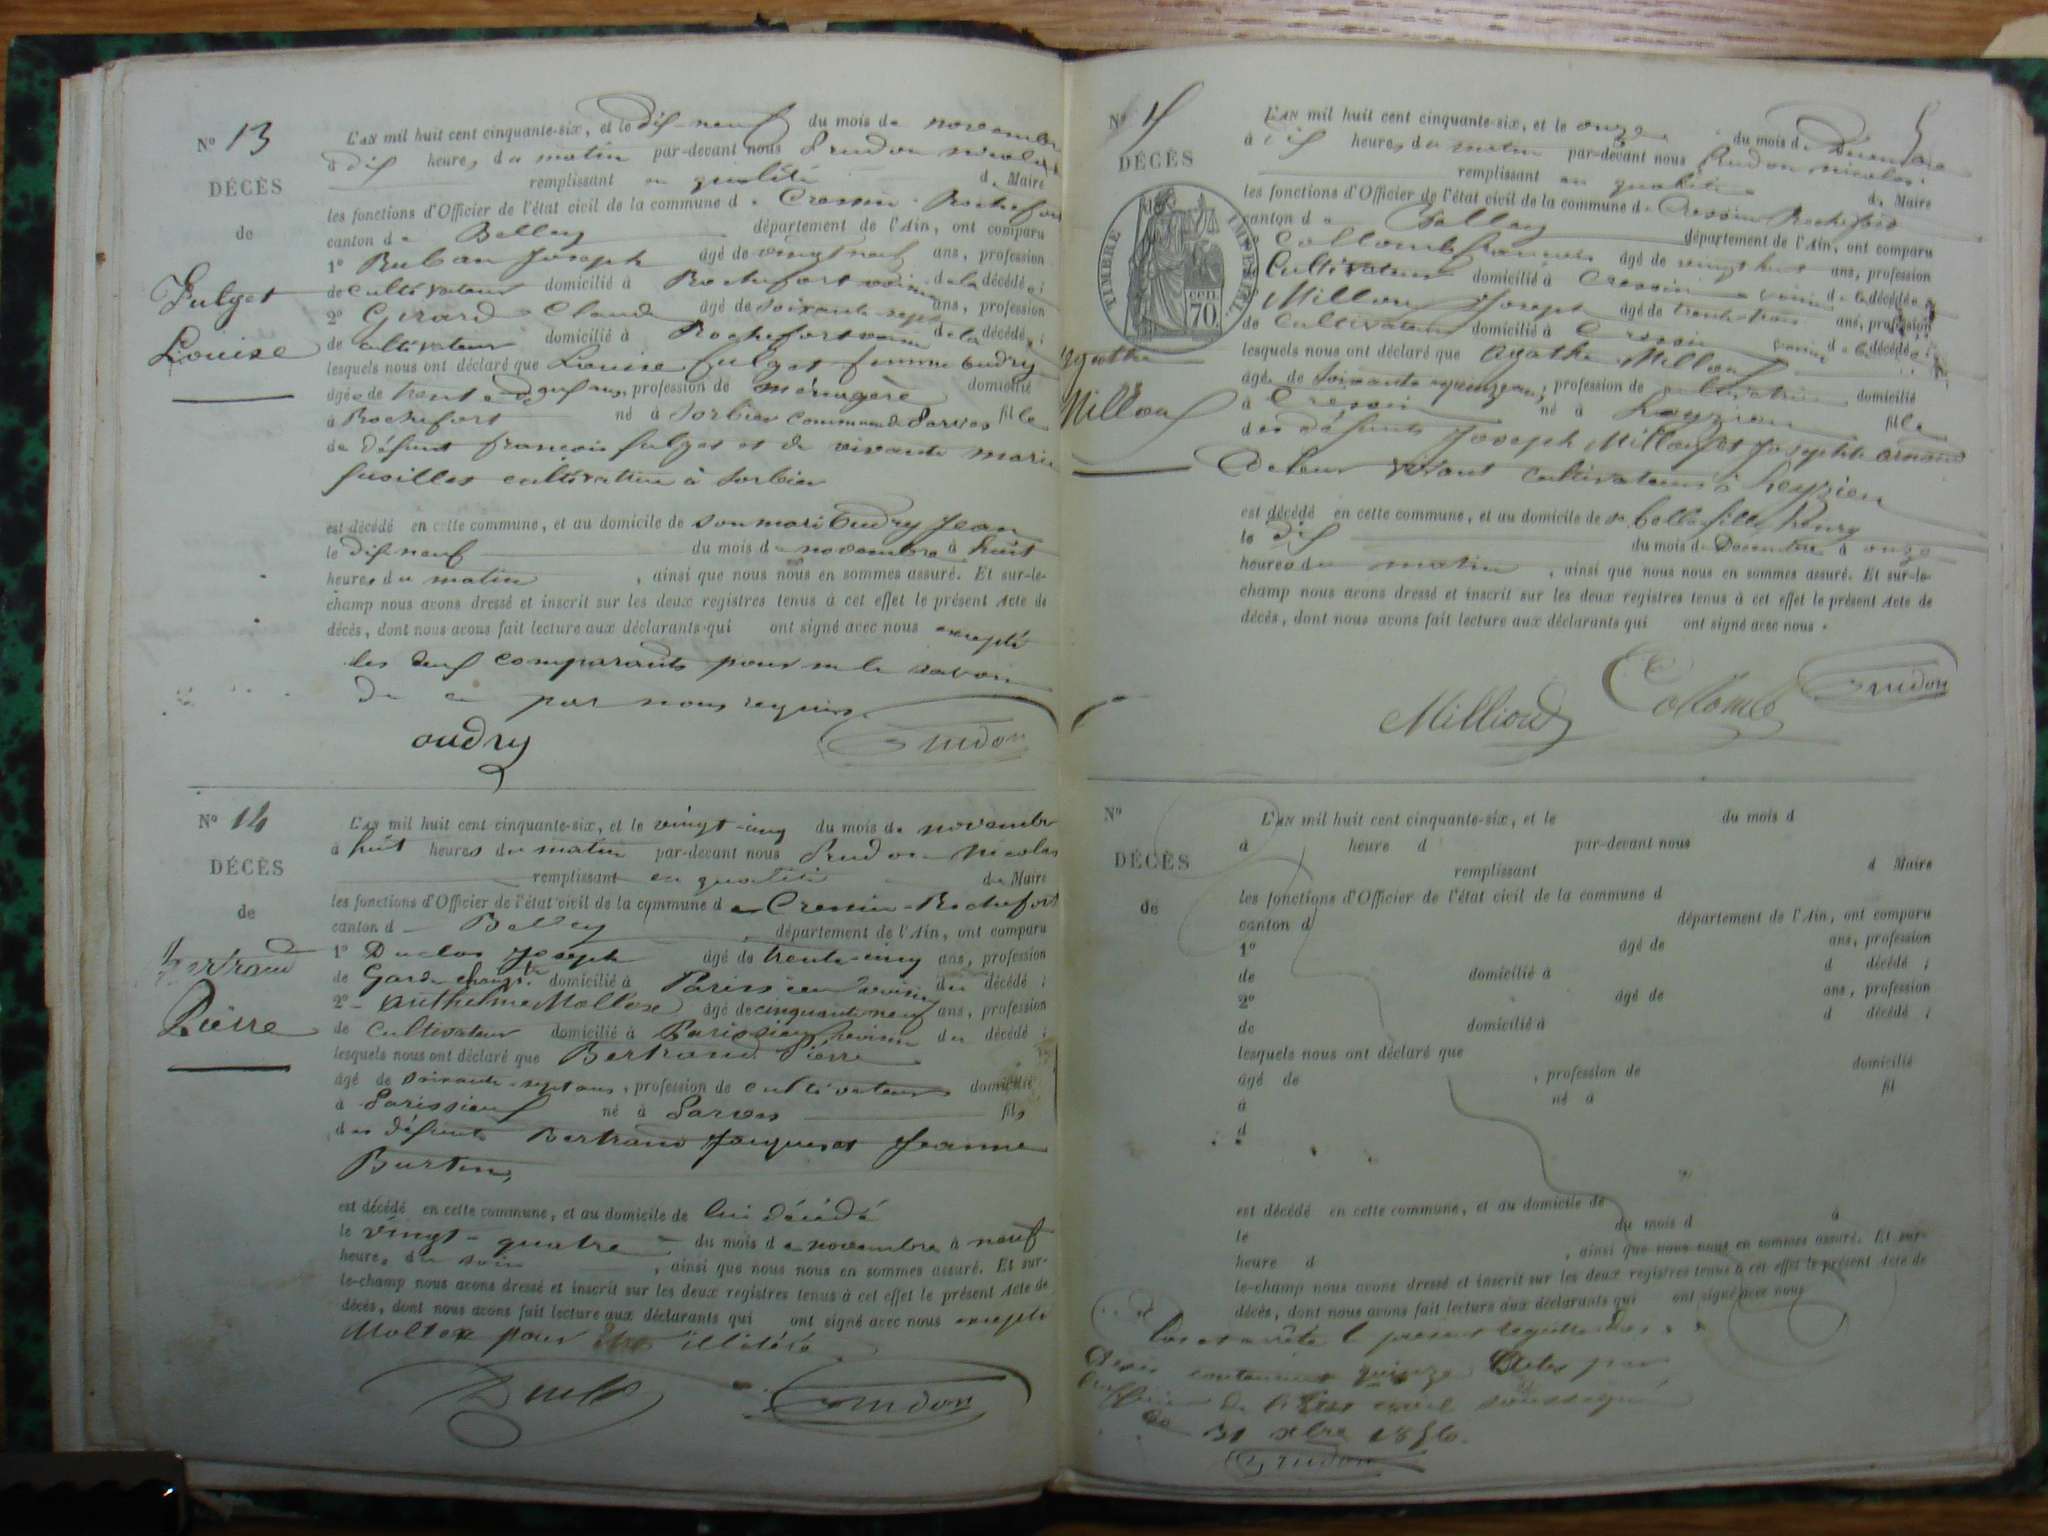 N° 13
DÉCÈS
de
Fulget
Louise
L'AN mil huit cent cinquante-six, et le dix-neuf du mois de novembre
à dix heures du matin par-devant nous Prudon nicolas
remplissant en qualité de Maire
les fonctions d'Officier de l'état civil de la commune de Cressin-Rochefort
canton de Belley département de l'Ain, ont comparu
1° Ruban Joseph âgé de vingt neuf ans, profession
de cultivateur domicilié à Rochefort voisin de la décédée ;
2° Girard Claude âgé de soixante-sept ans, profession
de cultivateur domicilié à Rochefort voisin de la décédée ;
lesquels nous ont déclaré que Louise fulget femme oudry
âgée de trente neuf ans, profession de ménagère domicilié
à Rochefort né à Sorbier commune de Parves fille
de défunt françois fulget et de vivante marie
fusilles cultivatrice à Sorbier
est décédé en cette commune, et au domicile de son mari oudry Jean
le dix neuf du mois de novembre à huit
heures du matin, ainsi que nous nous en sommes assuré. Et sur-le-
champ nous avons dressé et inscrit sur les deux registres tenus à cet effet le présent Acte de
décès, dont nous avons fait lecture aux déclarants qui ont signé avec nous excepté
les deux comparants pour ne le savoir
de ce par nous requis
oudry Prudon
N° 14
DÉCÈS
de
Bertrand
Pierre
L'AN mil huit cent cinquante-six, et le vingt-cinq du mois de novembre
à huit heures du matin par-devant nous Prudon Nicolas
remplissant en qualité de Maire
les fonctions d'Officier de l'état civil de la commune de Cressin-Rochefort
canton d Belley département de l'Ain, ont comparu
1° Duclos Joseph âgé de trente-cinq ans, profession
de Garde champtre domicilié à Parissieu voisin du décédé ;
2° Anthelme Mollex âgé de cinquante neuf ans, profession
de cultivateur domicilié à Parissieu, voisin du décédé ;
lesquels nous ont déclaré que Bertrand Pierre
âgé de soixante-sept ans, profession de cultivateur domicilié
à Parissieu né à Parves fils
des défunts Bertrand Jacques et Jeanne
Burtin,
est décédé en cette commune, et au domicile de lui décédé
le vingt-quatre du mois de novembre à neuf
heures du soir, ainsi que nous nous en sommes assuré. Et sur-
le-champ nous avons dressé et inscrit sur les deux registres tenus à cet effet le présent Acte de
décès, dont nous avons fait lecture aux déclarants qui ont signé avec nous excepté
Mollex pour être illitéré
Prudon
N° 15
DÉCÈS
TIMBRE IMPERIAL
70 CEN.
Agathe
Millouf
L'AN mil huit cent cinquante-six, et le onze du mois de Décembre
à dix heures du matin par-devant nous Prudon nicolas
remplissant en qualité de Maire
les fonctions d'Officier de l'état civil de la commune de Cressin Rochefort
canton de Belley département de l'Ain, ont comparu
Collomb françois âgé de vingt huit ans, profession
Cultivateur domicilié à Cressin voisin de la décédée
Milliou Joseph âgé de trente-trois ans, profession
de Cultivateur domicilié à Cressin voisin de la décédée ;
lesquels nous ont déclaré que Agathe Milliou
âgée de soixante quinze ans, profession de cultivatrice domicilié
à Cressin né à Leyzieu fille
des défunts Joseph Milliou et Josephte arnaud
de leur vivant cultivateurs à Leyzieu
est décédé en cette commune, et au domicile de sa belle fille
le dix du mois de Décembre à onze
heures du matin, ainsi que nous nous en sommes assuré. Et sur-le-
champ nous avons dressé et inscrit sur les deux registres tenus à cet effet le présent Acte de
décès, dont nous avons fait lecture aux déclarants qui ont signé avec nous.
Milliou Collomb Prudon
N°
DÉCÈS
de
L'AN mil huit cent cinquante-six, et le du mois d
à heure d par-devant nous
remplissant d Maire
les fonctions d'Officier de l'état civil de la commune d
canton d département de l'Ain, ont comparu
1° âgé de ans, profession
de domicilié à d décédé ;
2° âgé de ans, profession
de domicilié à d décédé ;
lesquels nous ont déclaré que
âgé de , profession de domicilié
à né à fil
d
est décédé en cette commune, et au domicile de
le du mois d à
heure d , ainsi que nous nous en sommes assuré. Et sur-
le-champ nous avons dressé et inscrit sur les deux registres tenus à cet effet le présent Acte de
décès, dont nous avons fait lecture aux déclarants qui ont signé avec nous
Clos et arrêté le present registre des
Décès contenant quinze Actes par
l'officier de l'Etat civil soussigné
Le 31 xbre 1856.
Prudon